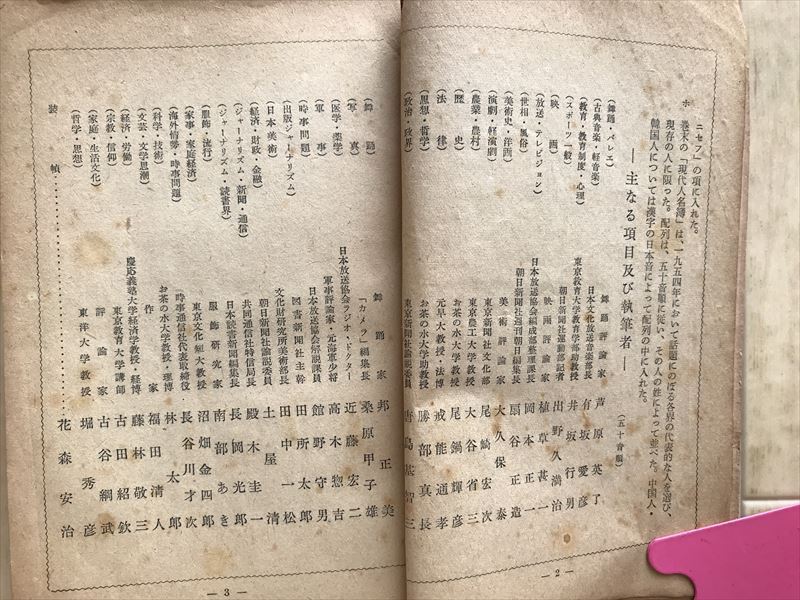 ニセフ」の項に入れた。
ホ 巻末の「現代人名簿」は、一九五四年において話題にのぼる各界の代表的な人を選び、
現存の人に限った。配列は、五十音順に従い、その人の姓によって並べた。中国人・
韓国人については漢字の日本音によって配列の中に入れた。
―主なる項目及び執筆者―
(五十音順)
(舞踊・バレエ) 舞踊評論家 芦原英了
(古典音楽・軽音楽) 日本文化放送音楽部長 有坂愛彦
(教育・教育制度・心理) 東京教育大学教育学部助教授 井坂行男
(スポーツ一般) 朝日新聞社運動部記者 出野久満治
(映画) 映画評論家 植草甚一
(放送・テレビジョン) 日本放送協会編成部整理課長 岡本正一
(世相・風俗) 朝日新聞社週刊朝日編集長 扇谷正造
(美術史・洋画) 美術評論家 大久保泰
(演劇・軽演劇) 東京新聞社文化部 尾崎宏次
(農業・農村) 東京農工大学教授 大谷省三
(歴史) お茶の水大学教授 尾鍋輝彦
(法律) 元早大教授・法博 戒能通孝
(思想・哲学) お茶の水大学助教授 勝部真長
(政治・政界) 東京新聞社論説委員 唐島基智三
―2―
(舞踊) 舞踊家 邦正美
(写真) 「カメラ」編集長 桑原甲子雄
(医学・薬学) 日本放送協会ラジオ・ドクター 近藤宏二
(軍事) 軍事評論家・元海軍少将 高木惣吉
(時事問題) 日本放送協会解説課員 館野守男
(出版ジャーナリズム) 図書新聞社主幹 田所太郎
(日本美術) 文化財研究所美術部長 田中一松
(経済・財政・金融) 朝日新聞社論説委員 土屋清
(ジャーナリズム・新聞・通信) 共同通信社特信局長 殿木圭一
(ジャーナリズム・読書界) 日本読書新聞編集長 長岡光郎
(服飾・流行) 服飾研究家 南部あき
(家事・家庭経済) 東京文化短大教授 沼畑金四郎
(海外情勢・時事問題) 時事通信社代表取締役 長谷川才次
(科学・技術) お茶の水大学教授・理博 林太郎
(文芸・文学思潮) 作家 福田清人
(経済・労働) 慶応義塾大学経済学教授・経博 藤林敬三
(宗教・信仰) 東京教育大学講師 古田紹欽
(家庭・生活文化) 評論家 古谷綱武
(哲学・思想) 東洋大学教授 堀秀彦
装幀…………………… 花森安治
―3―